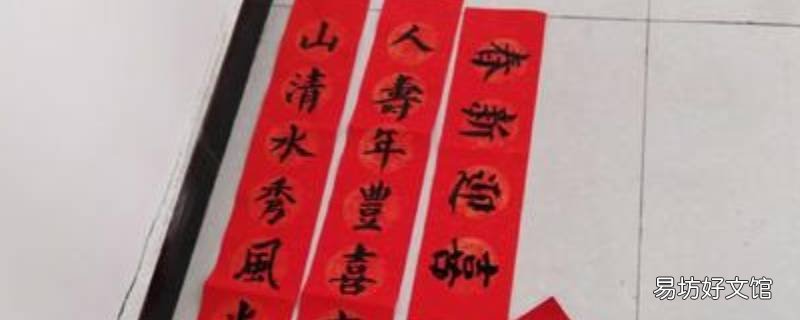 喜迎新春
人壽年豐喜
山清水秀風
易坊好文馆